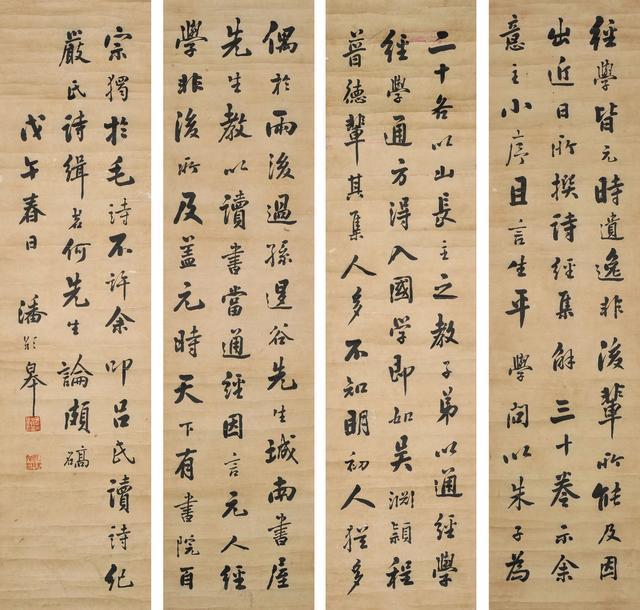 偶於雨後過孫退谷先生城南書屋
先生教以讀書當通經因言元人經
學非後所及蓋元時天下有書院百
二十各以山長主之教子弟以通經學
經學通方得入國學即如吳淵穎程
普德輩其集人多不知明初人猶多
經學皆元時遺逸非後輩所能及因
出近日所撰詩經集解三十卷示余
意主小序且言生平學問以朱子為
宗獨於毛詩不許余叩呂氏讀詩紀
嚴氏詩緝若何先生論頗確
戊午春日 潘齡皋